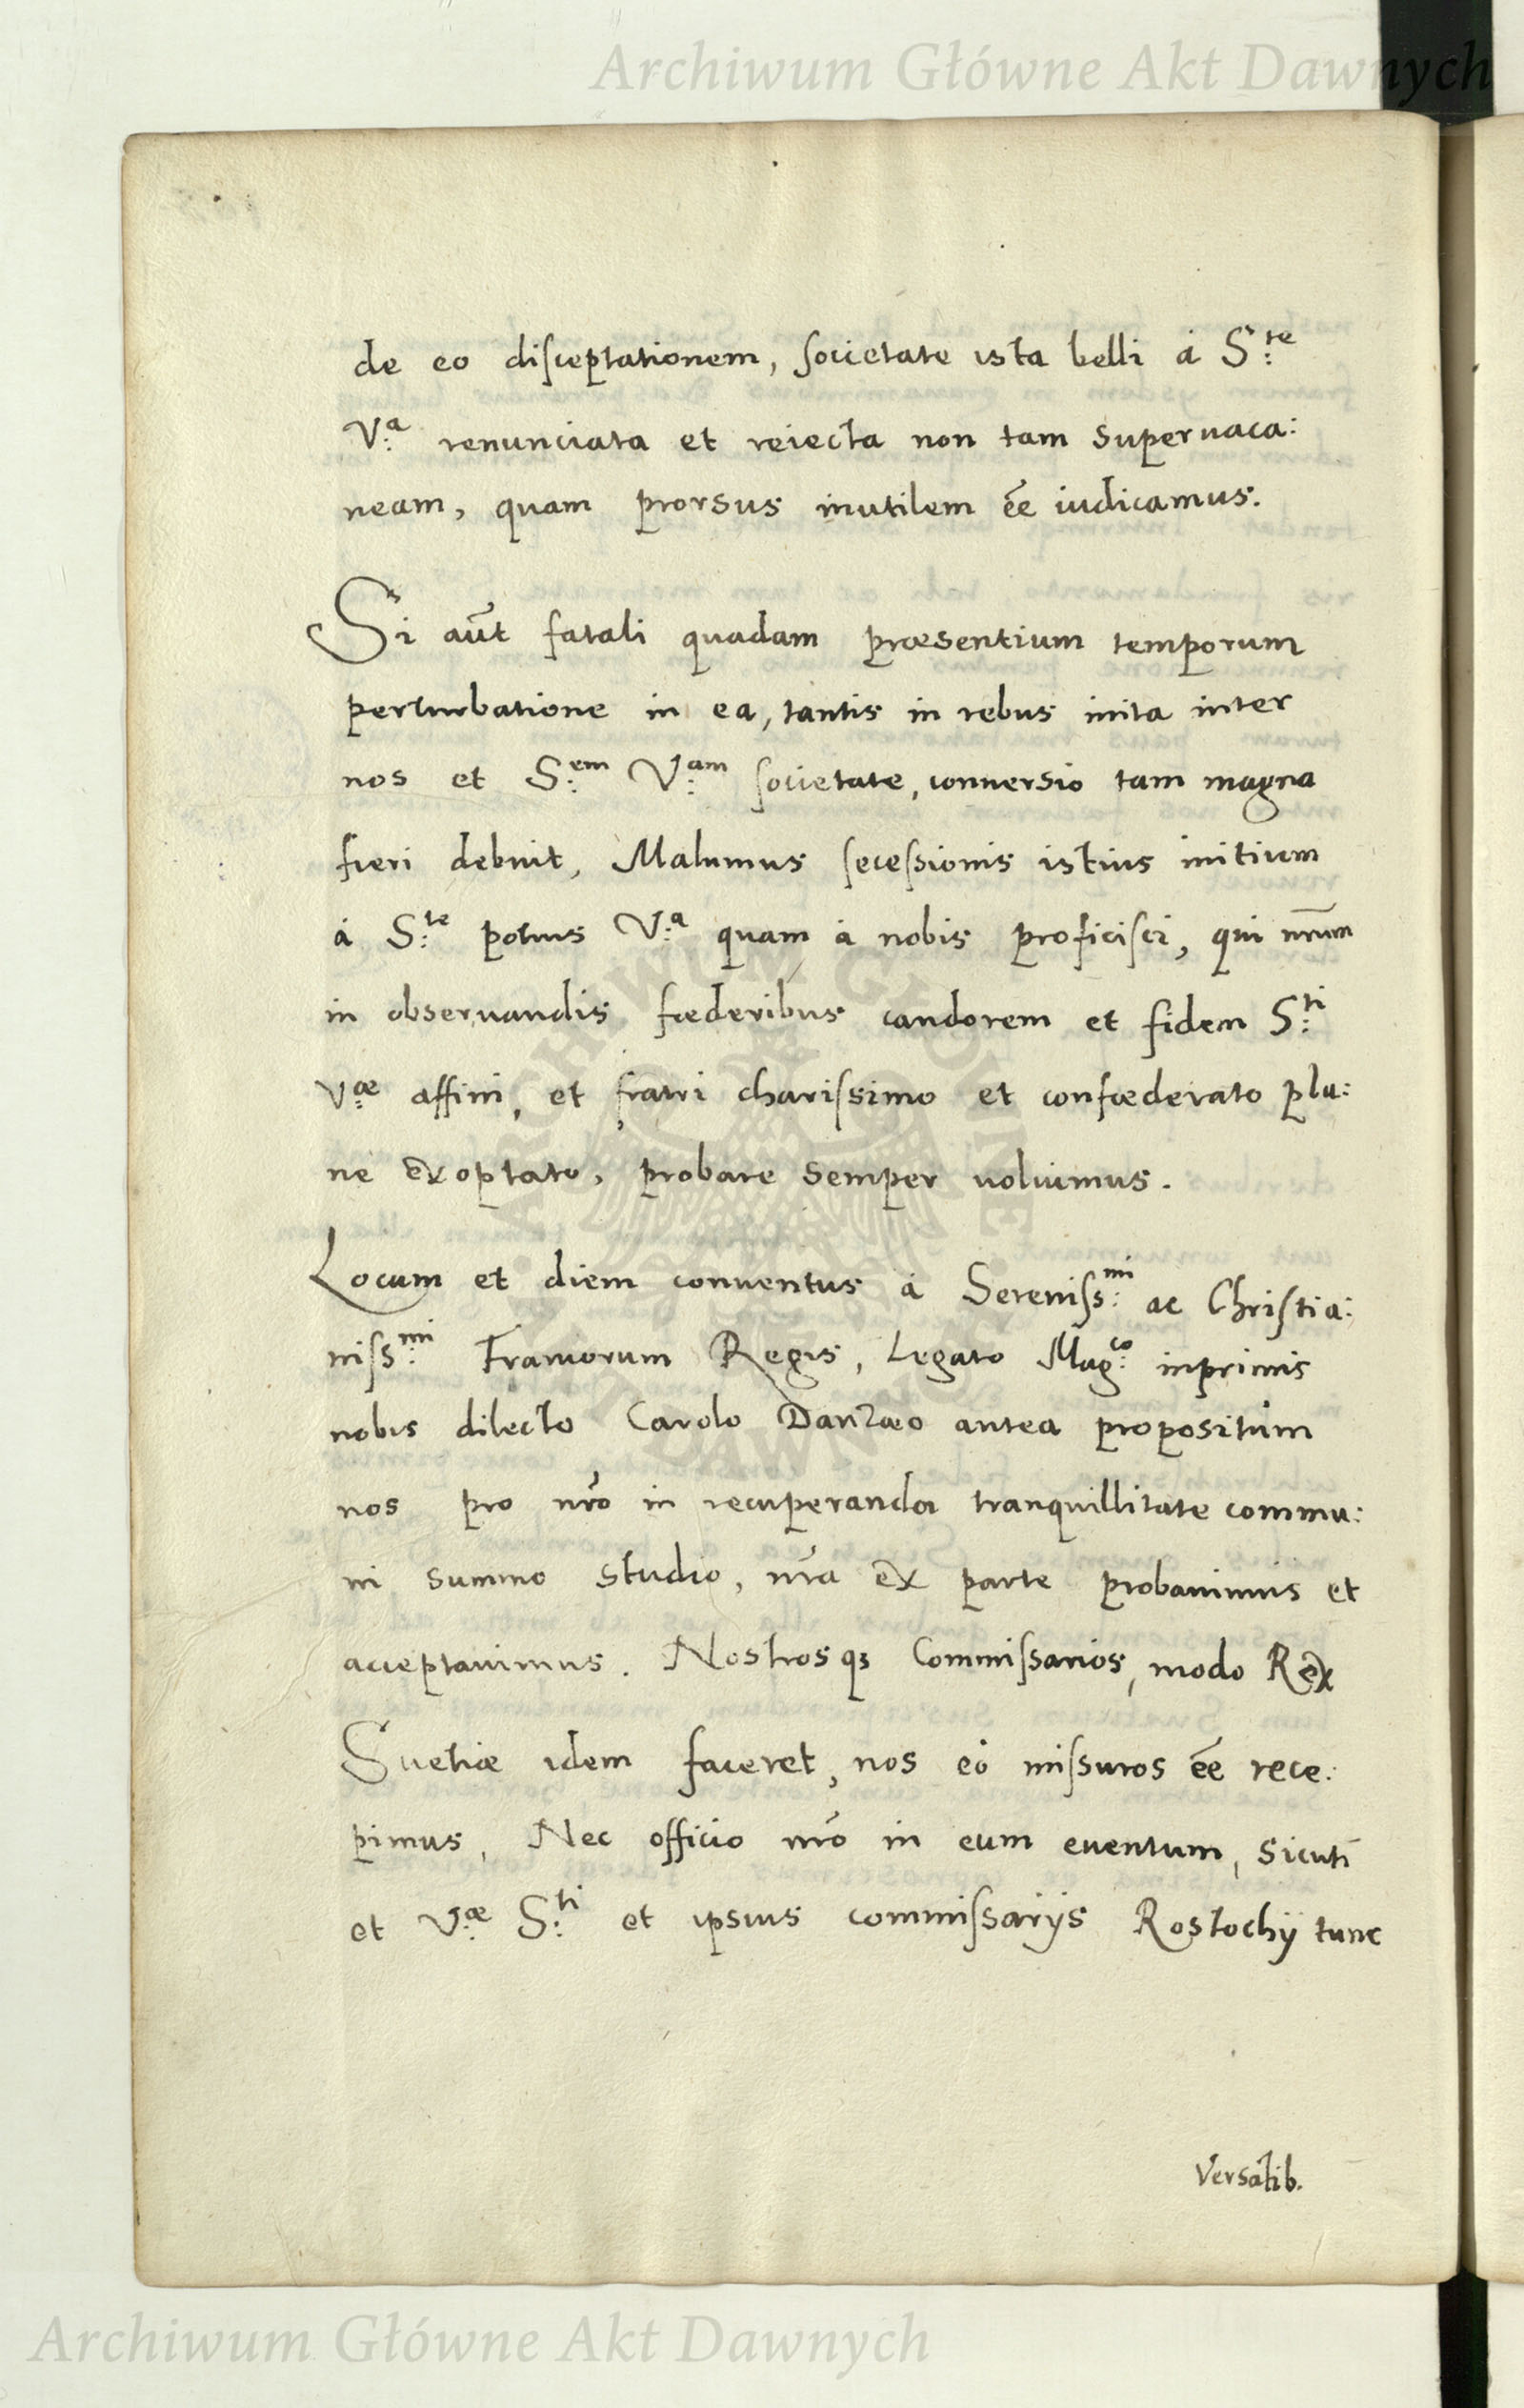 Archiwum Główne Akt Dawnych
de eo disceptationem, societate ista belli à S:te
V:a renunciata et reiecta non tam superuaca:
neam, quam prorsus inutilem ēe iudicamus.
Si aūt fatali quadam præsentium temporum
perturbatione in ea, tantis in rebus inita inter
nos et S:em V:am societate, conuersio tam magna
fieri debuit, Malumus secessionis istius initium
à S:te potius V:a quam à nobis proficisci, qui nr̄um
in obseruandis fœderibus candorem et fidem S:ti
V:æ affini, et fratri charissimo et confœderato pla:
ne exoptato, probare semper uoluimus.
Locum et diem conuentus à Sereniss:mi ac Christia:
niss:mi Francorum Regis, Legato Mag:co inprimis
nobis dilecto Carolo Danzæo antea propositum
nos pro nr̄o in recuperanda tranquillitate commu:
ni summo studio, nr̄a ex parte probauimus et
acceptauimus. Nostrosq3 Commissarios, modo Rex
Suetiæ idem faceret, nos eò missuros ēe rece:
pimus, Nec officio nr̄o in eum euentum, sicuti
et V:æ S:ti et ipsius commissarijs Rostochij tunc
Versatib.
ARCHIWUM GŁÓWNE AKT DAWNYCH
Archiwum Główne Akt Dawnych